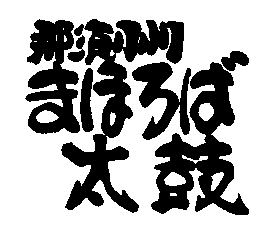 那須小川
まほろば
太鼓